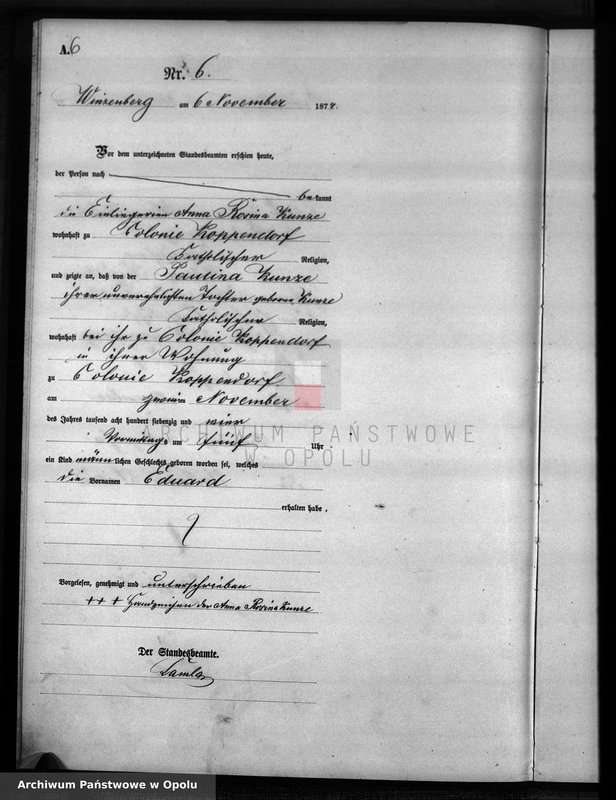 A. 6
Nr. 6.
Winzenberg am 6 November 1874.
Vor dem unterzeichneten Standesbeamten erschien heute,
der Person nach
bekannt
die Einliegerin Anna Rosina Kunze
wohnhaft zu Colonie Koppendorf
katholischer Religion,
und zeigte an, daß von der Paulina Kunze
ihrer unverehelichten Tochter geborne Kunze
katholischer Religion,
wohnhaft bei ihr zu Colonie Koppendorf
in ihrer Wohnung
zu Colonie Koppendorf.
am zweiten November
des Jahres tausend acht hundert siebenzig und vier
Vormittags um fünf Uhr
ein Kind männlichen Geschlechts geboren worden sei, welches
die Vornamen Eduard
erhalten habe.
Vorgelesen, genehmigt und unterschrieben
+++ Handzeichen der Anna Rosina Kunze
Der Standesbeamte.
ARCHIWUM PAŃSTWOWE
W OPOLU
Archiwum Państwowe w Opolu